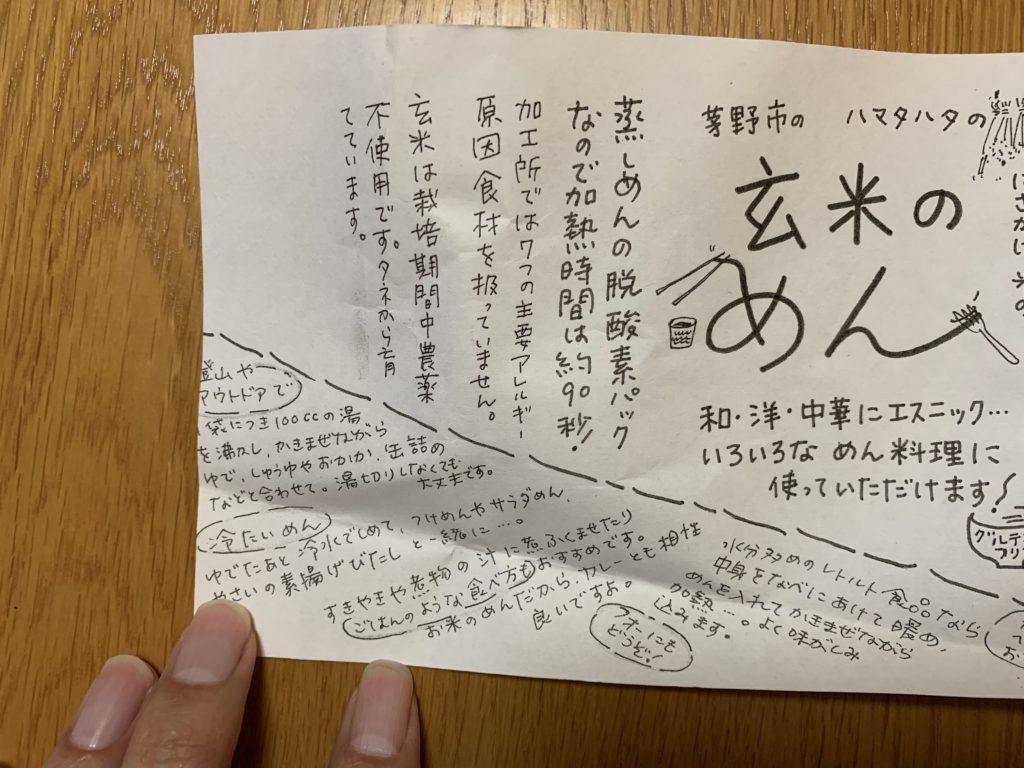 茅野市の ハマタハタの
玄米の
めん
和・洋・中華にエスニック…
いろいろな めん料理に
使っていただけます!
蒸しめんの脱酸素パック
なので加熱時間は約90秒!
加工所では7つの主要アレルギー
原因食材を扱っていません。
玄米は栽培期間中農薬
不使用です。タネから育
てています。
登山や
アウトドアで
1袋につき100ccの湯
を沸かし、かきまぜながら
ゆで、しょうゆやおかか、缶詰の
などと合わせて。湯切りしなくても
大丈夫です。
冷たいめん
ゆでたあと冷水でしめて、つけめんやサラダめん、
やさいの素揚げびたしと一緒に…。
すきやきや煮物の汁に
ふくませたり
ごはんのような食べ方もおすすめです。
お米のめんだから、カレーとも相性
良いですよ。
水分多めのレトルト食品なら
中身をなべにあけて暖め、
めんを入れてかきまぜながら
加熱…。よく味がしみ
込みます。
どうぞ!
グルテン
フリー